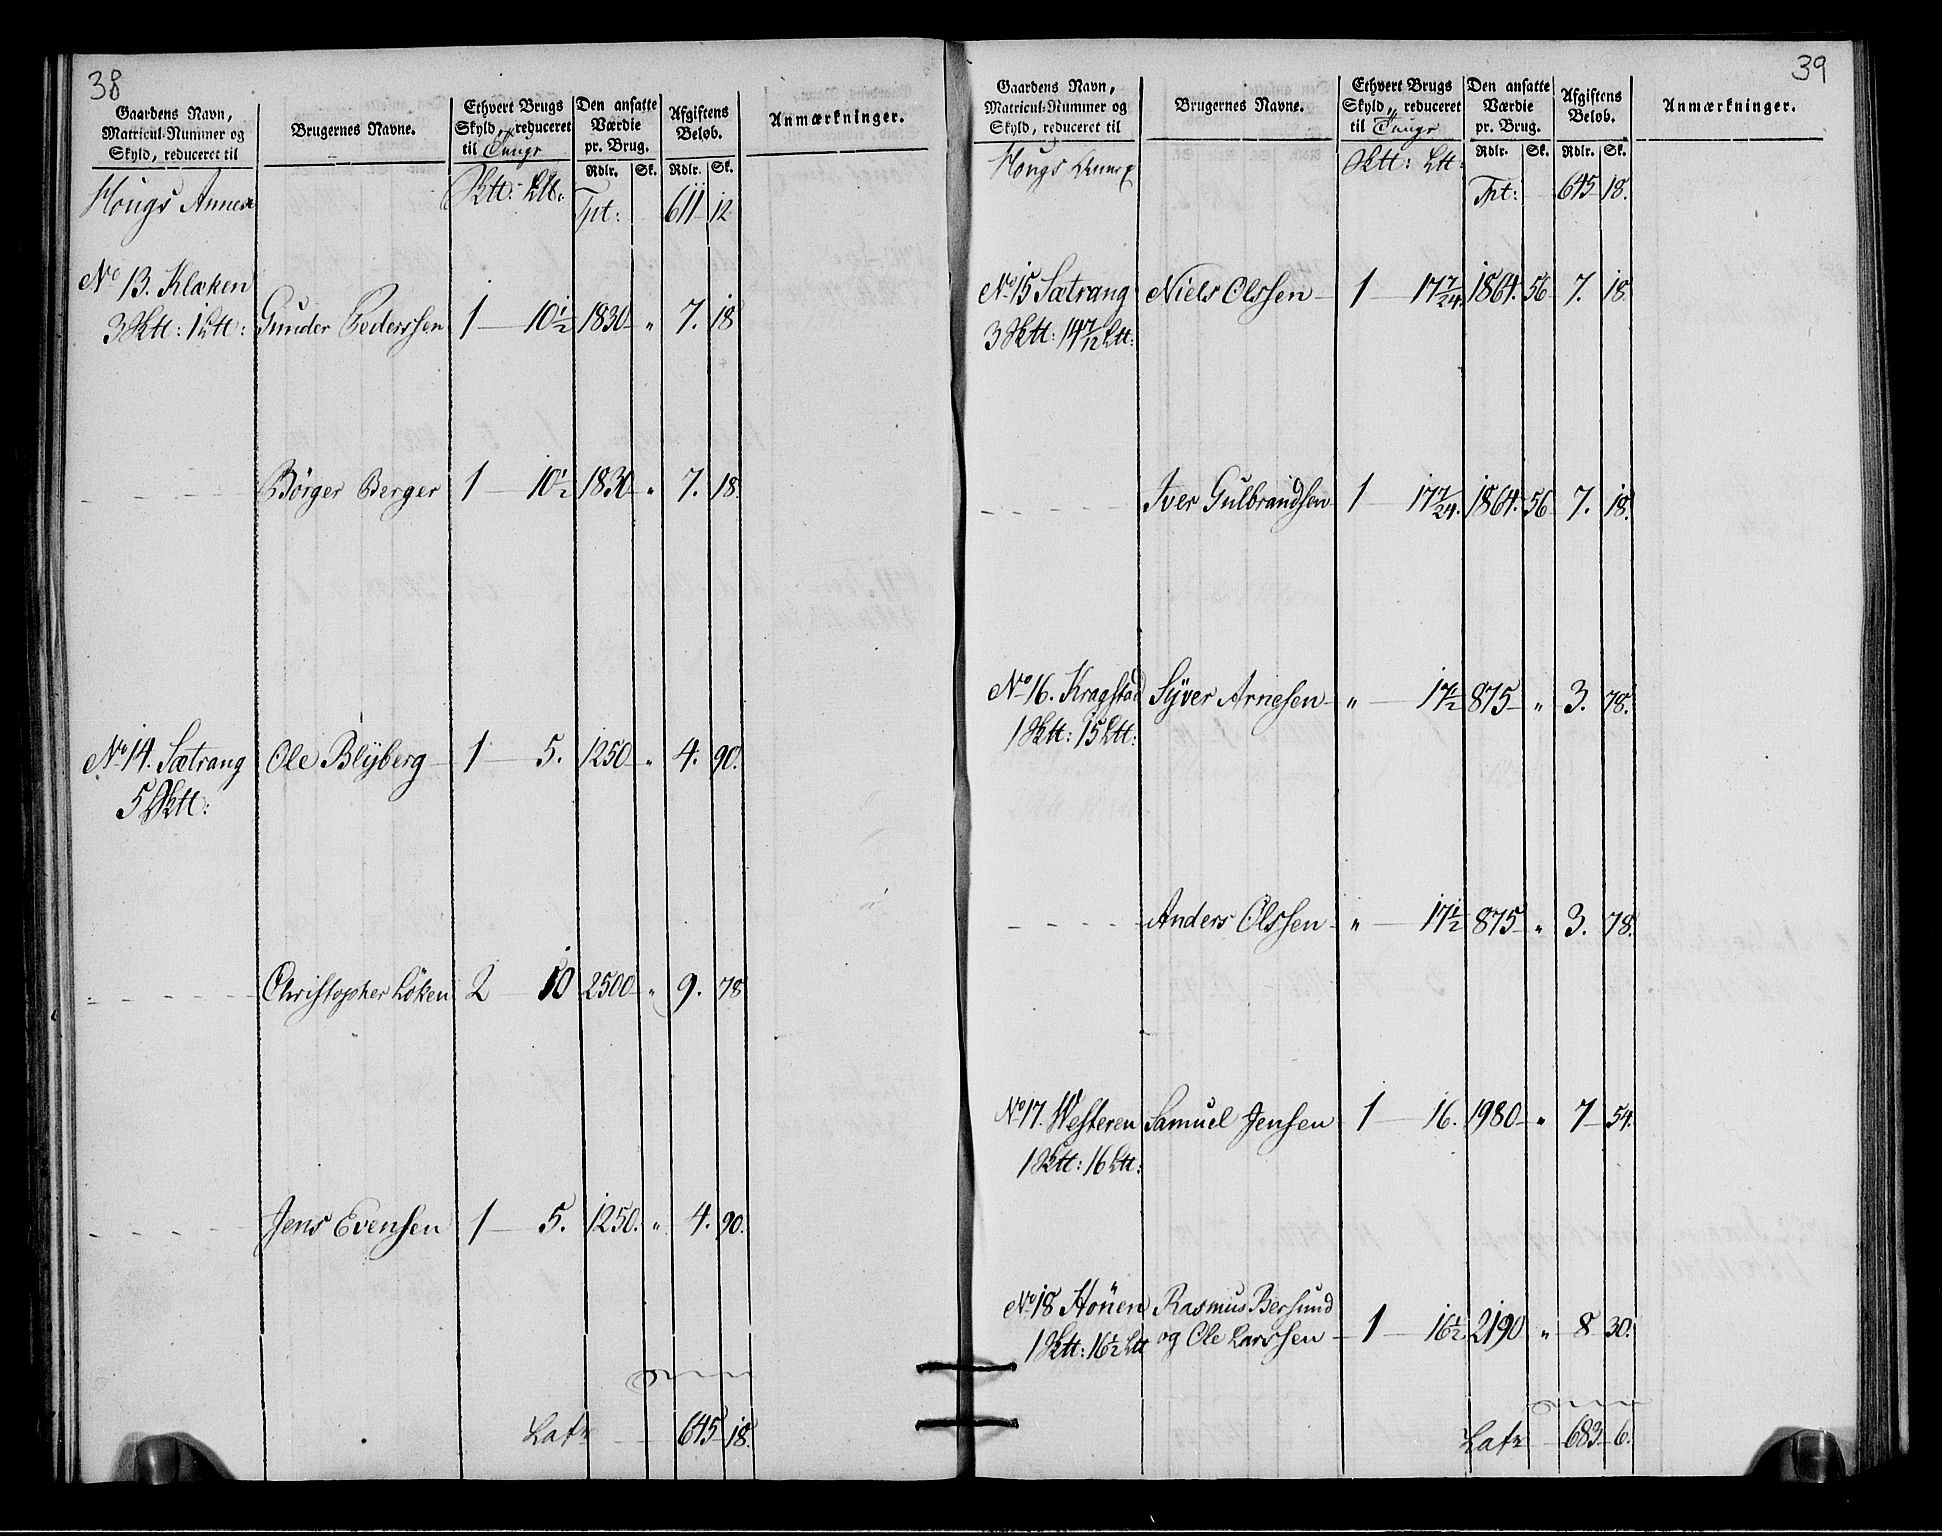 38
Gaardens Navn, Matricul-Nummer og Skyld, reduceret til
Brugernes Navne.
Ethvert Brugs Skyld, reduceret til Tunge
Den ansatte Værdie pr. Brug.
Afgiftens Beløb.
Anmærkninger.
Rdlr. Sk. Rdlr. Sk.
Hougs Annex
Tpt: 611 12
No 13. Klæken Gunder Pederssen 1 10 1/2 1830 " 7. 18
Børger Berger 1 10 1/2 1830 " 7. 18
No 14. Sætrang Ole Blyberg 1 5. 1250 " 4. 90.
Christopher Løken 2 10 2500 " 9. 78
Jens Evensen 1 5. 1250. " 4. 90.
Lats 645 18.
39
Gaardens Navn, Matricul-Nummer og Skyld, reduceret til
Brugernes Navne.
Ethvert Brugs Skyld, reduceret til Tunge
Den ansatte Værdie pr. Brug.
Afgiftens Beløb.
Anmærkninger.
Rdlr. Sk. Rdlr. Sk.
Hougs Annex
Tpt: 645 18.
No 15 Sætrang Niels Olssen 1 17 7/24 1864. 56 7. 18
Iver Gulbrandsen 1 17 7/24. 1864. 56 7. 18.
No 16. Kragstad Syver Arnesen " 17 1/2 875 " 3. 78.
Anders Olssen " 17 1/2 875 " 3. 78.
No 17. Westeren Samuel Jensen 1 16. 1980 " 7 54.
No 18 Hønen Rasmus Bersund
og Ole Larssen 1 16 1/2 2190 " 8 30.
Lats 683 6.